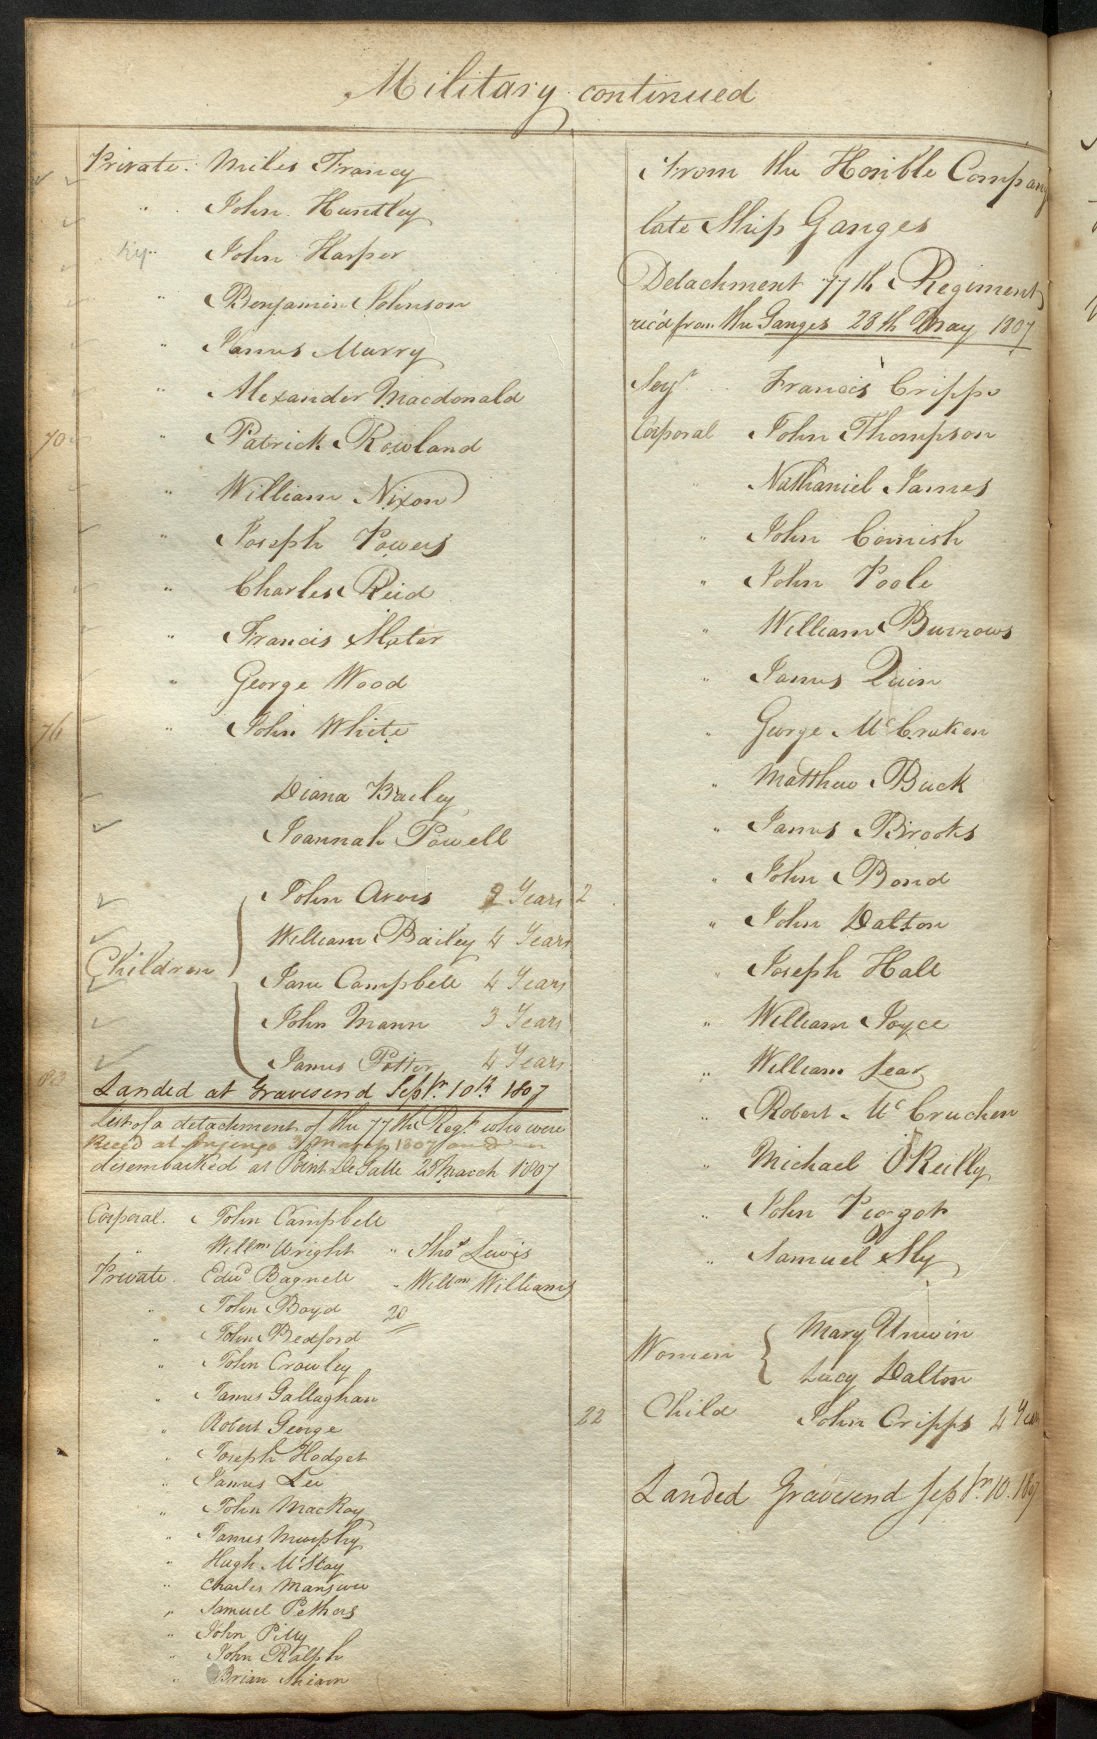 Military continued
Private. Miles Francy
" John Huntley
" John Harper
" Benjamin Johnson
" James Murry
" Alexander Macdonald
70 " Patrick Rowland
" William Nixon
" Joseph Powers
" Charles Reid
" Francis Slater
" George Wood
76 " John White
Diana Bailey
Joannah Powell
John Avois 2 Years 2
William Bailey 4 Years
Children
Jane Campbell 4 Years
John Mann 3 Years
James Potter 4 Years
83 Landed at Gravesend Septr. 10th 1807
List of a detachment of the 77th Regt who were
Recd at Anjengo March 1807 and
disembarked at Point De Galle 25 March 1807
Corporal. John Campbell
" Willm Wright " Thos Lewis
Private. Edwd Bagnell " Willm Williams
" John Boyd 20
" John Bedford
" John Crowley
" James Gallaghan
" Robert George
" Joseph Hodget
" James Lee
" John MacKay
" James Murphy
" Hugh McKay
" Charles Manswee
" Samuel Pethers
" John Pilly
" John Ralph
" Brian Shearn
From the Honble Company
late Ship Ganges
Detachment 77th Regiment
rec'd from the Ganges 28th May 1807
Serjt Francis Cripps
Corporal John Thompson
" Nathaniel James
" John Cornish
" John Poole
" William Burrows
" James Quin
" George McCraken
" Matthew Buck
" James Brooks
" John Bond
" John Dalton
" Joseph Hall
" William Joyce
" William Lear
" Robert McCruchen
" Michael O'Reilly
" John Piggot
" Samuel Sly
Women Mary Unwin
Lucy Dalton
22 Child John Cripps 4 Years
Landed Gravesend Septr. 10. 1807